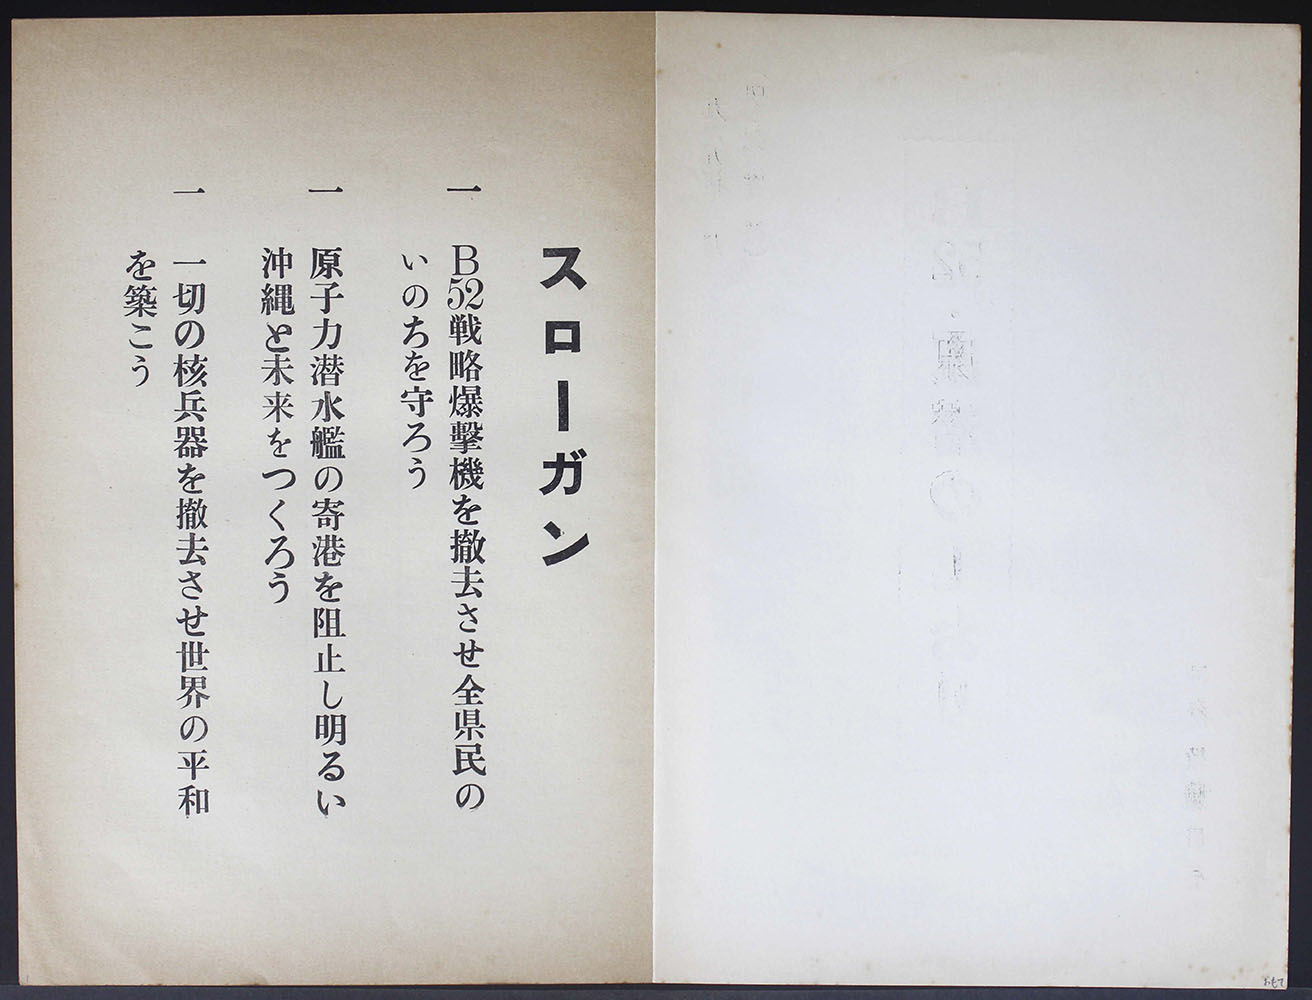 スローガン
一　B52戦略爆撃機を撤去させ全県民の
いのちを守ろう
一　原子力潜水艦の寄港を阻止し明るい
沖縄と未来をつくろう
一　一切の核兵器を撤去させ世界の平和
を築こう
おもて